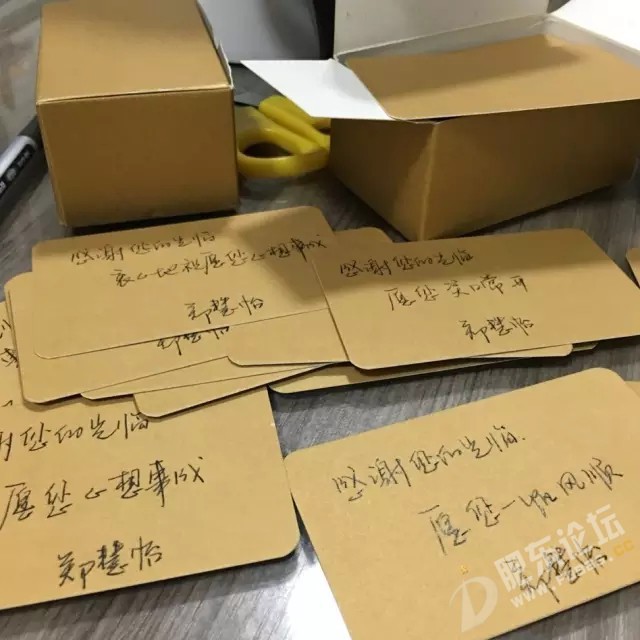 感谢您的光临
衷心地祝愿您心想事成
郑慧怡
感谢您的光临
愿您笑口常开
郑慧怡
郑慧怡
谢您的光临
愿您心想事成
郑慧怡
感谢您的光临.
愿您一帆风顺
郑慧怡
股东论坛